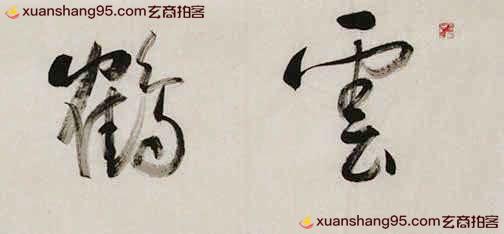 xuanshang95.com玄商拍客
雲鶴
xuanshang95.com玄商拍客